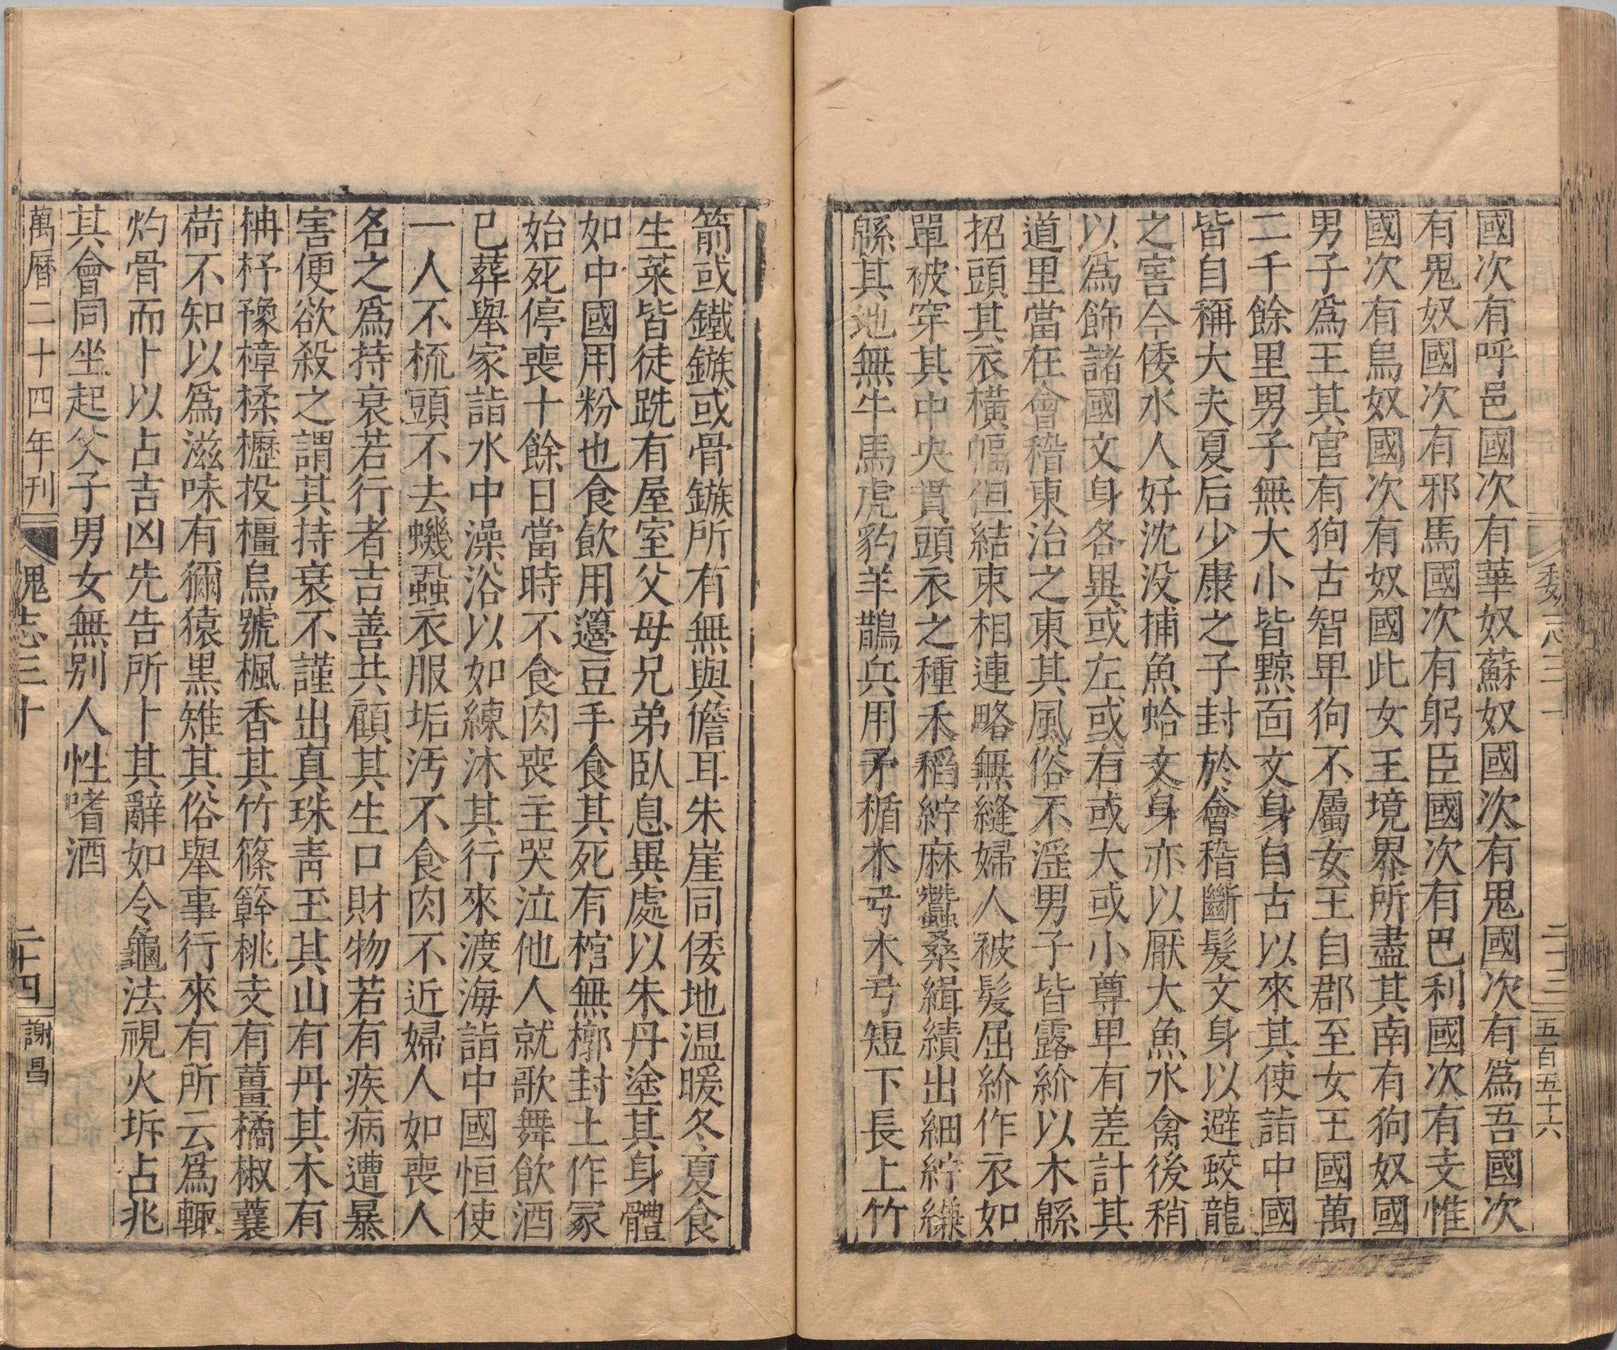 國次有呼邑國次有華奴蘇奴國次有鬼國次有為吾國次
有鬼奴國次有邪馬國次有躬臣國次有巴利國次有支惟
國次有烏奴國次有奴國此女王境界所盡其南有狗奴國
男子爲王其官有狗古智卑狗不屬女王自郡至女王國萬
二千餘里男子無大小皆黥面文身自古以來其使詣中國
皆自稱大夫夏后少康之子封於會稽斷髮文身以避蛟龍
之害今倭水人好沈没捕魚蛤文身亦以厭大魚水禽後稍
以爲飾諸國文身各異或左或右或大或小尊卑有差計其
道里當在會稽東治之東其風俗不淫男子皆露紒以木緜
招頭其衣橫幅但結束相連略無縫婦人被髮屈紒作衣如
單被穿其中央貫頭衣之種禾稻紵麻蠶桑緝績出細紵縑
緜其地無牛馬虎豹羊鵲兵用矛楯木弓木弓短下長上竹
二十三
五百五十六
箭或鐵鏃或骨鏃所有無與儋耳朱崖同倭地温暖冬夏食
生菜皆徒跣有屋室父母兄弟臥息異處以朱丹塗其身體
如中國用粉也食飲用籩豆手食其死有棺無槨封土作冢
始死停喪十餘日當時不食肉喪主哭泣他人就歌舞飲酒
已葬舉家詣水中澡浴以如練沐其行來渡海詣中國恒使
一人不梳頭不去蟣蝨衣服垢汚不食肉不近婦人如喪人
名之爲持衰若行者吉善共顧其生口財物若有疾病遭暴
害便欲殺之謂其持衰不謹出真珠青玉其山有丹其木有
柟杼豫樟楺櫪投橿烏號楓香其竹篠簳桃支有薑橘椒蘘
荷不知以爲滋味有獼猿黑雉其俗舉事行來有所云爲輒
灼骨而卜以占吉凶先告所卜其辭如令龜法視火坼占兆
其會同坐起父子男女無别人性嗜酒
萬曆二十四年刊
魏志三十
二十四
謝昌